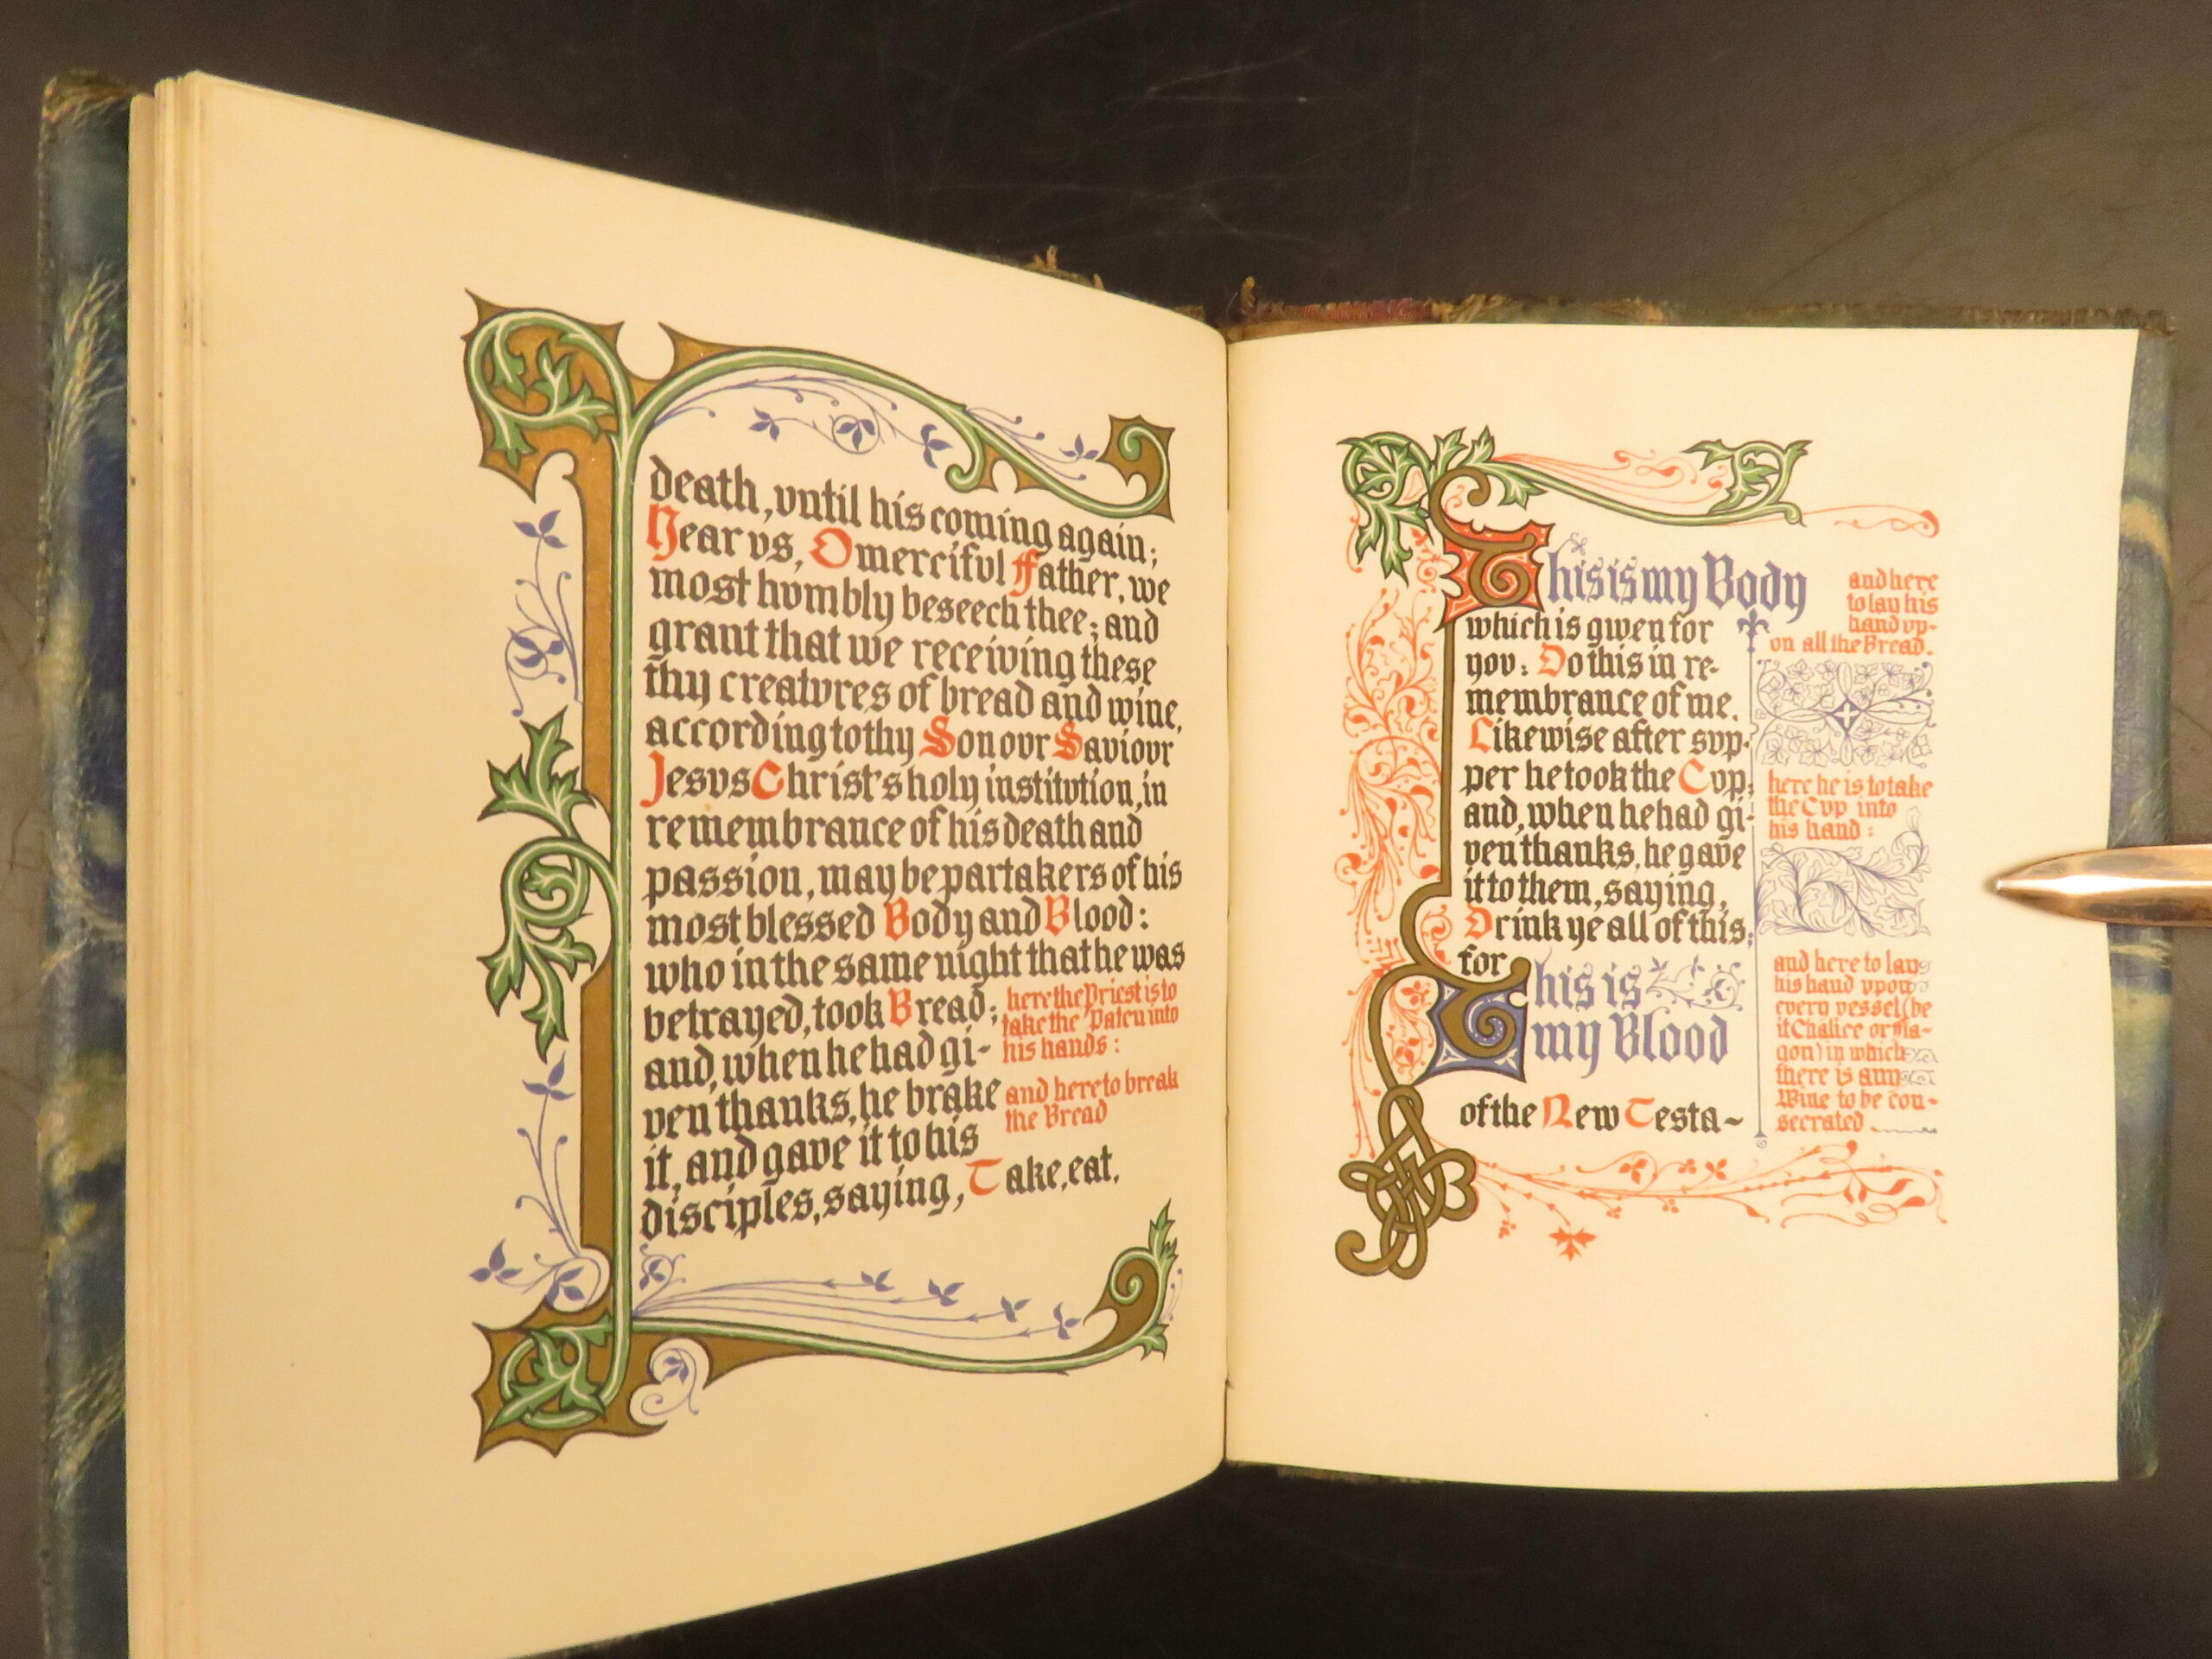 death, vntil his coming again;
Hear vs, O mercifvl ffather, we
most hvmbly beseech thee; and
grant that we receiving these
thy creatvres of bread and wine,
according to thy Son ovr Saviovr
Jesvs Christ's holy institvtion, in
remembrance of his death and
passion, may be partakers of his
most blessed Body and Blood:
who in the same night that he was
betrayed, took Bread;
here the Priest is to
take the Paten into
his hands:
and, when he had gi-
ven thanks, he brake
and here to break
the Bread
it, and gave it to his
disciples, saying, Take, eat,
This is my Body
which is given for
yov: Do this in re-
membrance of me.
Likewise after svp-
per he took the Cvp;
and, when he had gi-
ven thanks, he gave
it to them, saying,
Drink ye all of this;
for This is
my Blood
of the New Testa-
and here
to lay his
hand vp-
on all the Bread.
here he is to take
the Cvp into
his hand:
and here to lay
his hand vpon
every vessel (be
it Chalice or Fla-
gon) in which
there is any
Wine to be con-
secrated